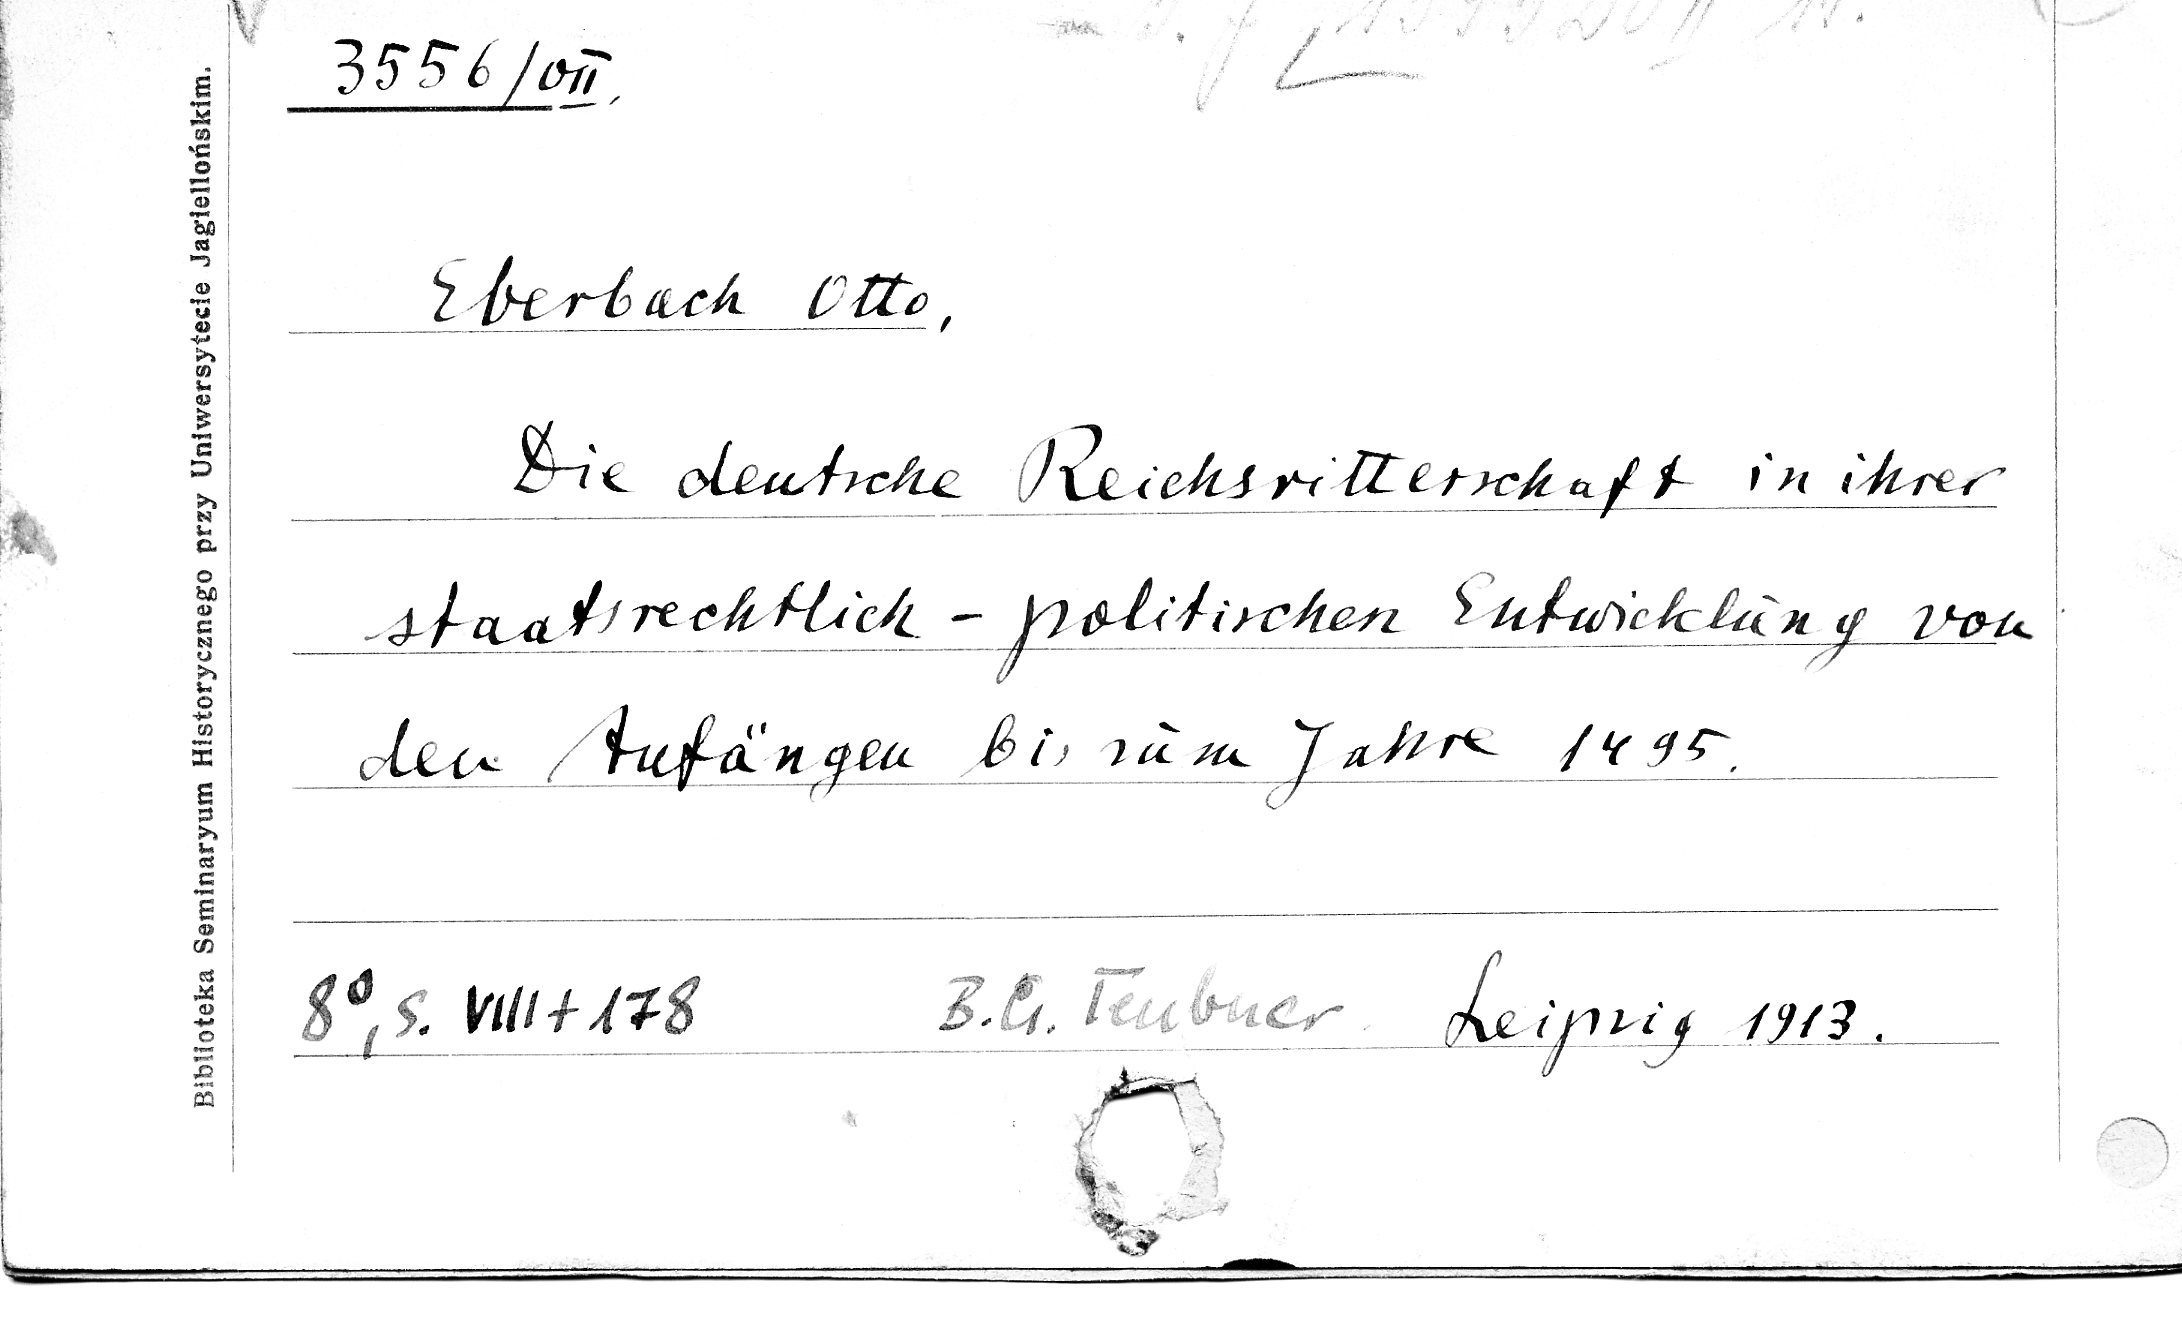 3556/VII,
Eberbach Otto,
Die deutsche Reichsritterschaft in ihrer
staatsrechtlich - politischen Entwicklung von
den Anfängen bis zum Jahre 1495.
8°, S. VIII + 178 B. G. Teubner Leipzig 1913.
Biblioteka Seminaryum Historycznego przy Uniwersytecie Jagiellońskim.